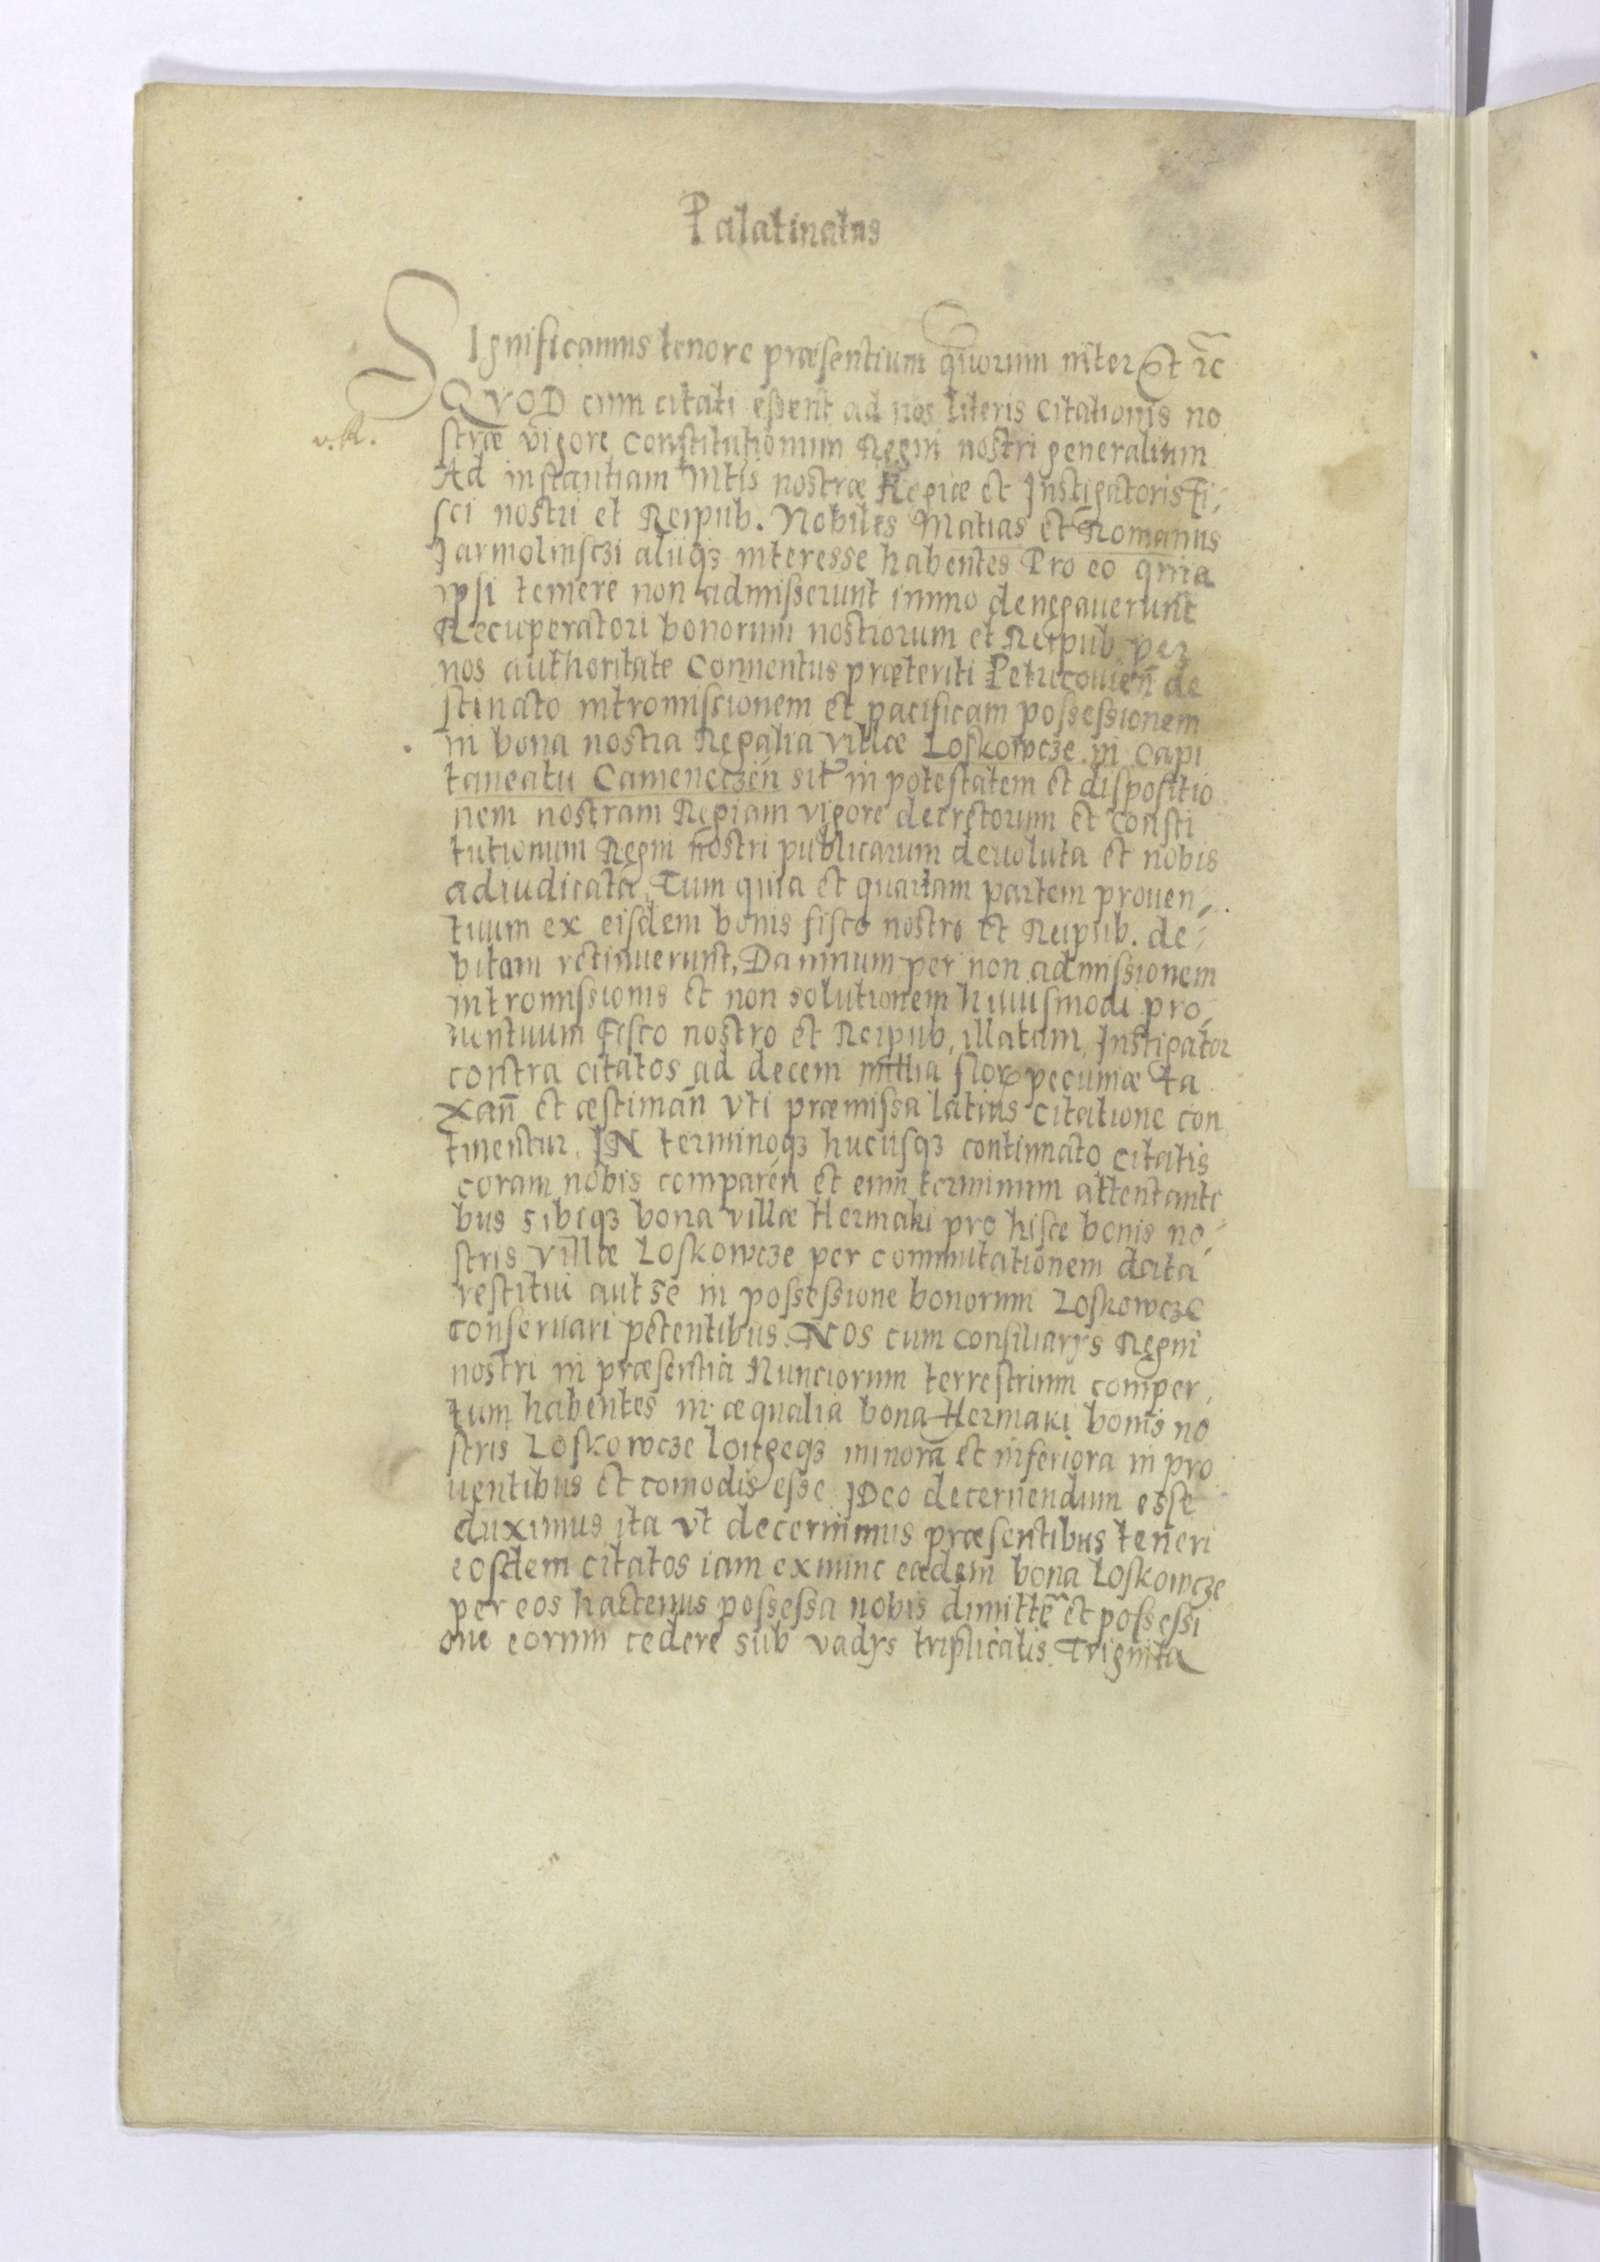 Palatinatus
SIgnificamus tenore præsentium quorum inter Est rc̃
QVOD cum citati essent ad nos literis citationis no
v. R.
stræ vigore Constitutionum Regni nostri generalium
Ad instantiam Mtis nostræ Regiæ et Instigatoris Fi„
sci nostri et Reipub. Nobiles Matias et Romanus
Jarmolinsczi aliiqꝫ interesse habentes Pro eo quia
ipsi temere non admisserunt immo denegauerunt
Recuperatori bonorum nostrorum et Reipub. per
nos authoritate Conuentus præteriti Petricouien̄ de
stinato intromissionem et pacificam possessionem
in bona nostra Regalia villæ Loskowcze in Capi
taneatu Cameneczen̄ sit̃ in potestatem et dispositio
nem nostram Regiam vigore decretorum et Consti
tutionum Regni nostri publicarum deuoluta et nobis
adiudicata, Tum quia et quartam partem prouen„
tuum ex eisdem bonis fisco nostro et Reipub. de„
bitam retinuerunt, Damnum per non admissionem
intromissionis et non solutionem huiusmodi pro„
uentuum Fisco nostro et Reipub. illatum, Instigator
contra citatos ad decem millia floꝝ pecuniæ ta
xan̄ et æstiman̄ vti præmissa latius citatione con
tinentur. IN terminoqꝫ hucusqꝫ continuato citatis
coram nobis comparen̄ et eum terminum attentanti
bus sibiqꝫ bona villæ Hermaki pro hisce bonis no„
stris villæ Loskowcze per commutationem data
restitui aut se in possessione bonorum Loskowcze
conseruari petentibus. NOS cum consiliarys Regni
nostri in præsentia Nunciorum terrestrium comper„
tum habentes inæqualia bona Hermaki bonis no
stris Loskowcze longeqꝫ minora et inferiora in pro
uentibus et comodis esse IDeo decernendum esse
duximus ita vt decernimus præsentibus teneri
eosdem citatos iam exnunc eadem bona Loskowcze
per eos hactenus possessa nobis dimittẽ et possessi
one eorum cedere sub vadys triplicatis. Triginta